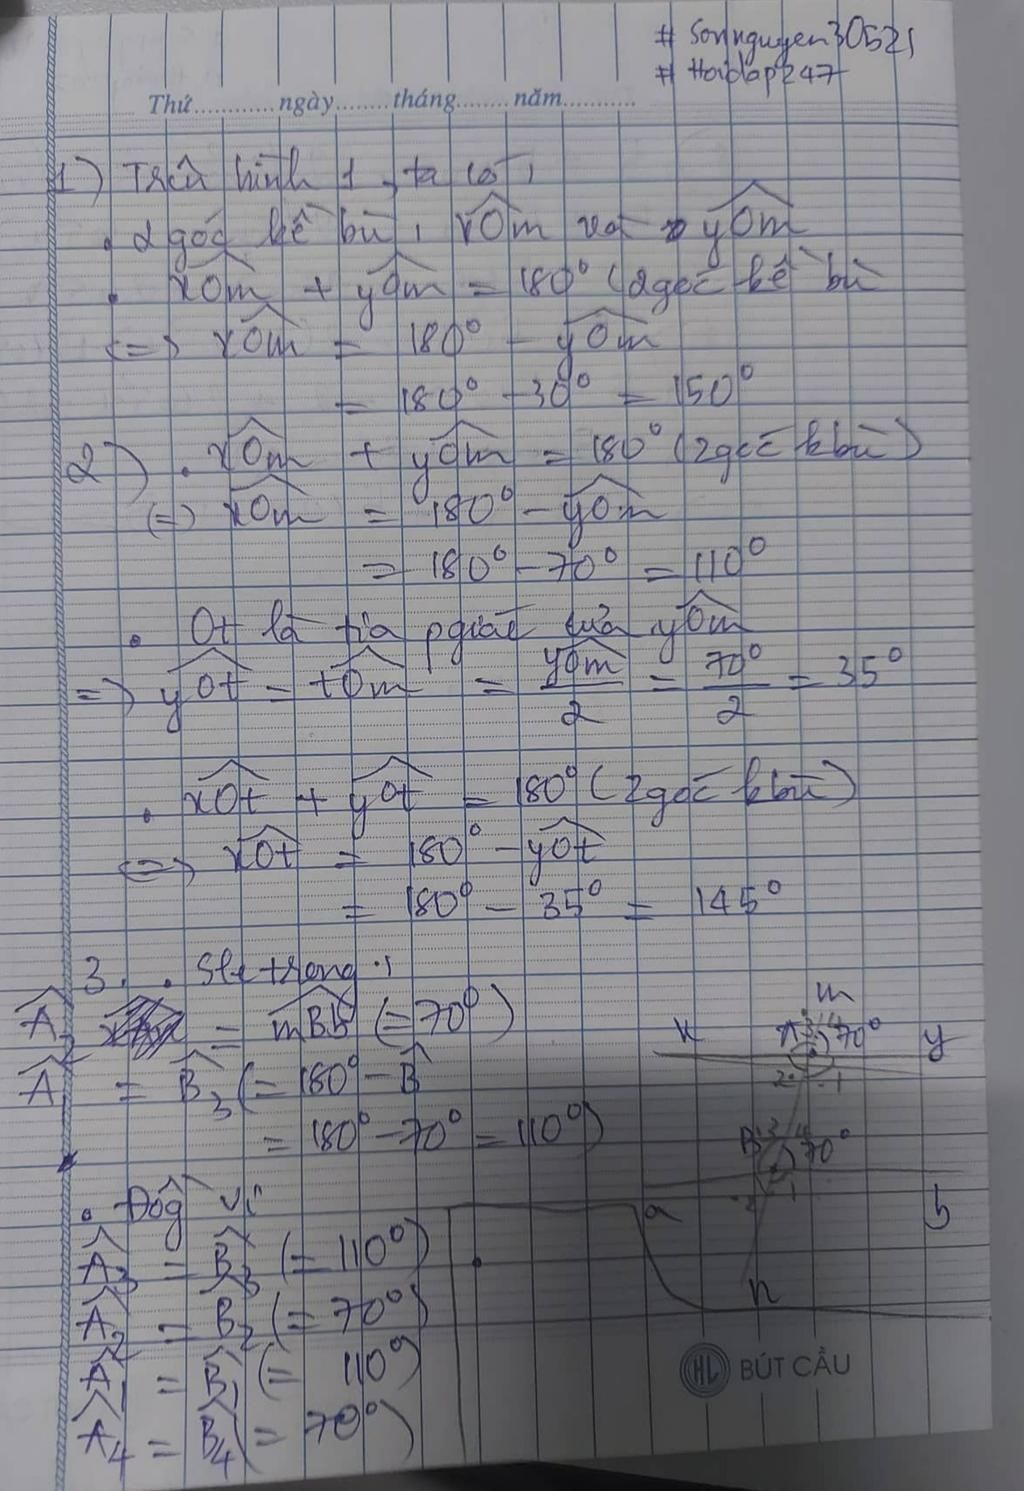 # Sonnguyen30521
# Hoidap247
Thứ............ngày........tháng........năm............
1) Trên hình 1, ta có:
. 2 góc kề bù: xOm và yOm
. xOm + yOm = 180° (2 góc kề bù
<=> xOm = 180° - yOm
= 180° - 30° = 150°
2) . xOm + yOm = 180° (2 góc kbù)
<=> xOm = 180° - yOm
= 180° - 70° = 110°
. Ot là tia pgiác của yOm
=> yOt = tOm = yOm/2 = 70°/2 = 35°
. xOt + yOt = 180° (2 góc kbù)
<=> xOt = 180° - yOt
= 180° - 35° = 145°
3. . Sle trong:
= mBb (= 70°)
A = B3 (= 180° - B
= 180° - 70° = 110°)
. Đồg vị
A3 = B3 (= 110°)
A2 = B2 (= 70°)
A1 = B1 (= 110°)
A4 = B4 (= 70°)
m
x A 3 4 70° y
2 1
B 3 4 70°
2 1
a b
n
HL BÚT CẦU